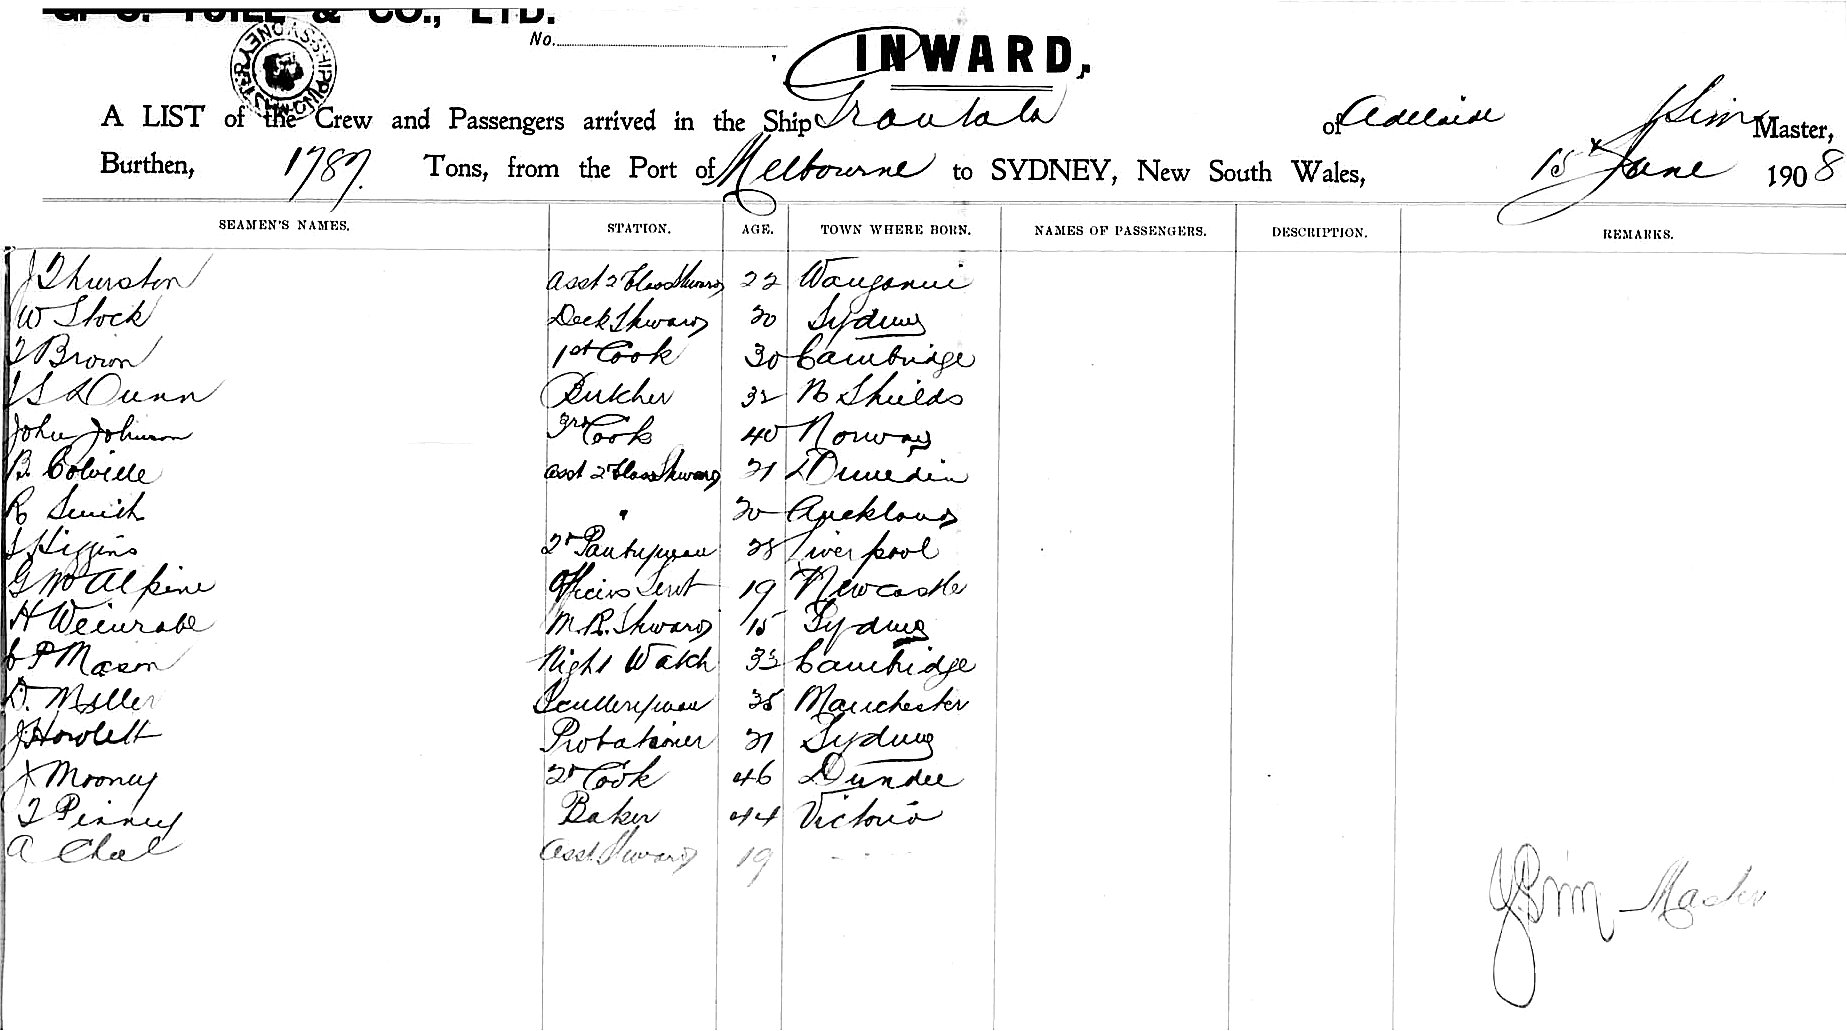 & CO., LTD.
No.
INWARD,
A LIST of the Crew and Passengers arrived in the Ship Grantala of Adelaide J Sim Master,
Burthen, 1787. Tons, from the Port of Melbourne to SYDNEY, New South Wales, 15 June 1908
SEAMEN'S NAMES. STATION. AGE. TOWN WHERE BORN. NAMES OF PASSENGERS. DESCRIPTION. REMARKS.
J Thurston Asst 2 Class Steward 22 Wanganui
W Stock Deck Steward 20 Sydney
T Brown 1st Cook 30 Cambridge
Dunn Butcher 32 N Shields
John Johnson 3rd Cook 40 Norway
B. Colville Asst 2 Class Steward 21 Dunedin
R Smith " 20 Auckland
Higgins 2d Pantryman 28 Liverpool
G McAlpine Officers Servt 19 Newcastle
H Weinrabe M.R. Steward 15 Sydney
P Mason Night Watch 33 Cambridge
D. Miller Sculleryman 38 Manchester
J. Howlett Probationer 21 Sydney
J Mooney 2d Cook 46 Dundee
T Pinney Baker 44 Victoria
A Asst Steward 19 - - -
J. Sim Master